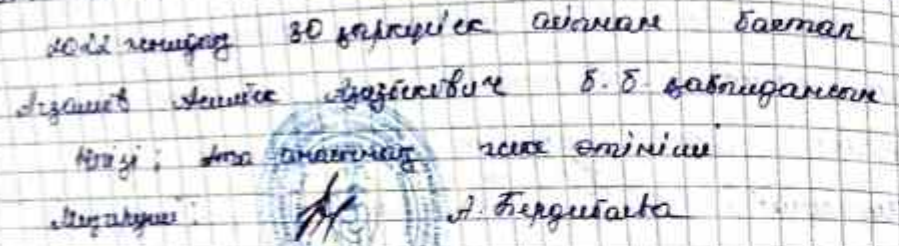 2022 жылдың 30 қыркүйек айынан бастап
Агзамов Б.Б. қабылдансын
Негізі: Ата анасының жеке өтініші
Меңгеруші: А. Бердибаева